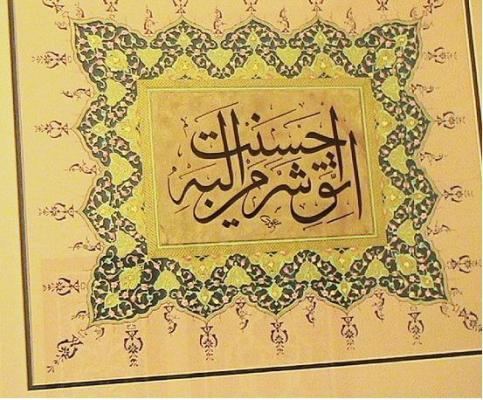 اتق شر من احسنت اليه